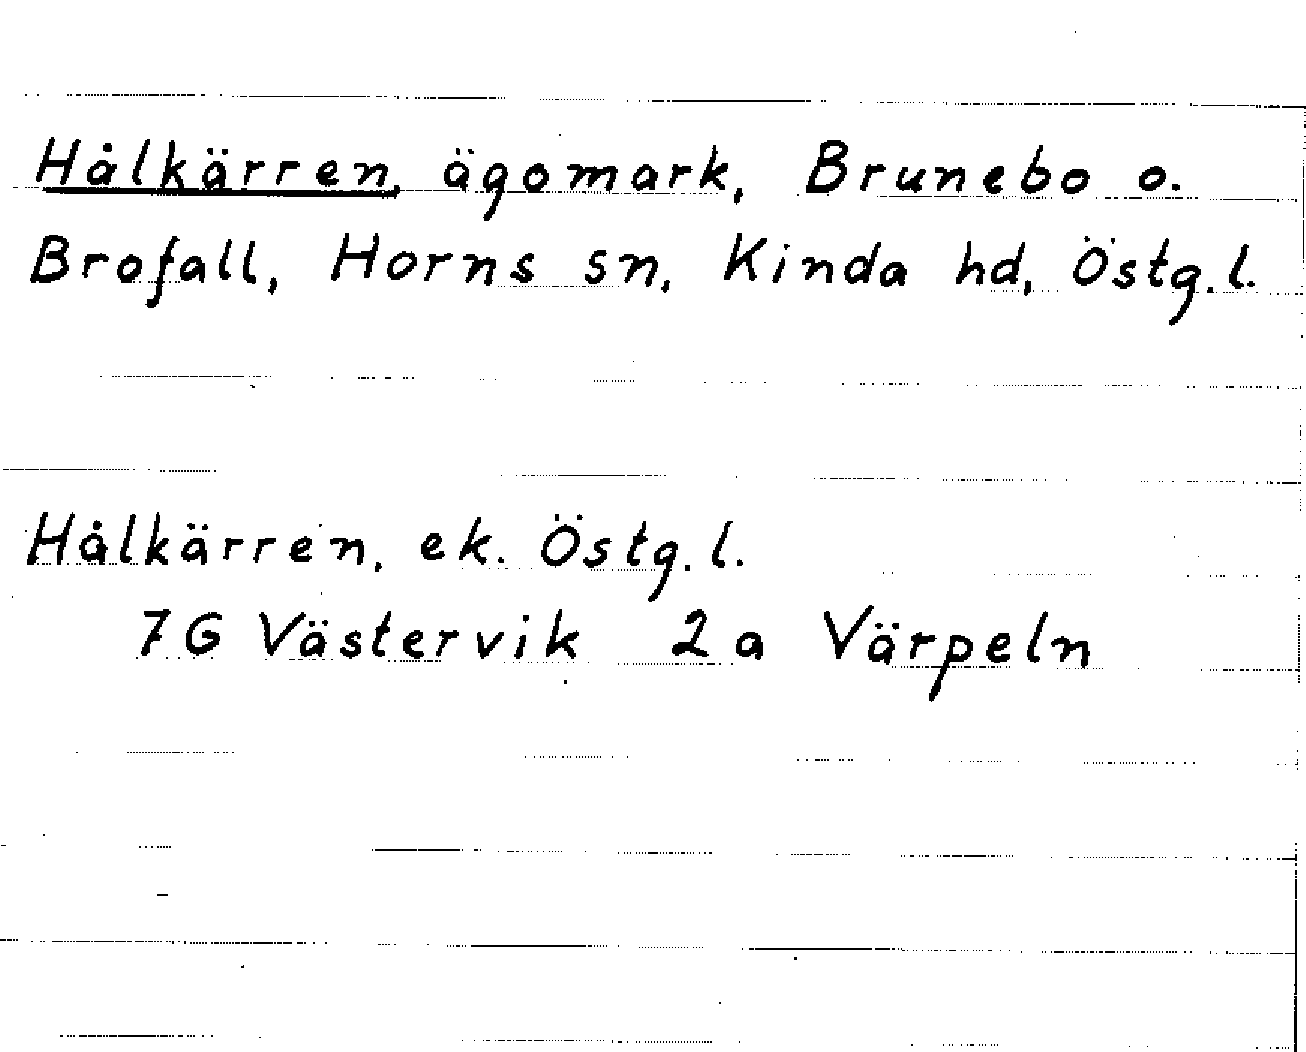 Hålkärren, ägomark, Brunebo o.
Brofall, Horns sn, Kinda hd, Östg.l.
Hålkärren, ek. Östg.l.
7G Västervik 2a Värpeln